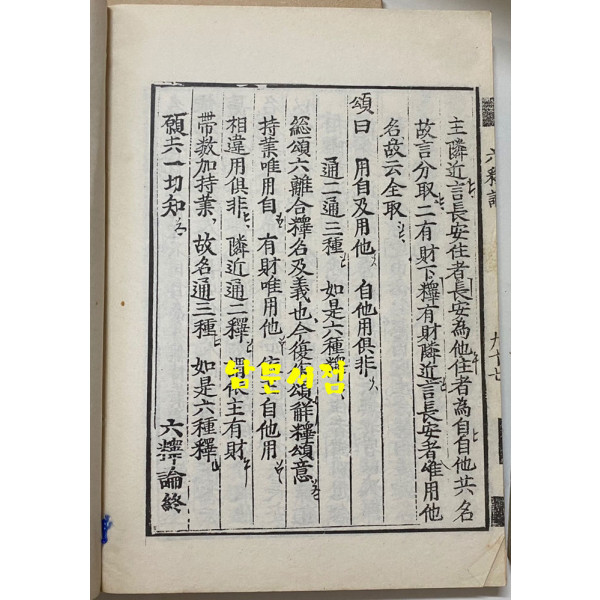 主隣近言長安住者長安為他住者為自自他共名
故言分取二有財下釋有財隣近言長安者唯用他
名故云全取
頌曰 用自及用他 自他用俱非
通二通三種 如是六種釋
総頌六離合釋名及義也今復作頌解釋頌意
持業唯用自 有財唯用他 依主自他用
相違用俱非 隣近通二釋 謂依主有財
帯数加持業 故名通三種 如是六種釋
願共一切知
六釋論終
남문서점